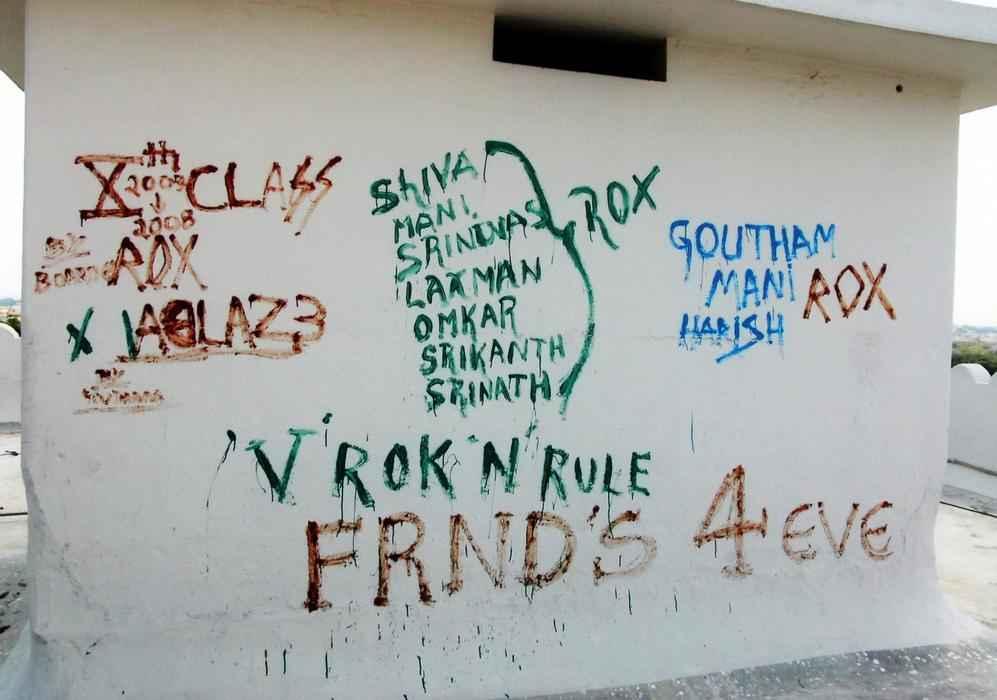 Xth CLASS
2005
2008
ROX
X ABLAZ3
SHIVA
MANI
SRINIVAS
LAXMAN
OMKAR
SRIKANTH
SRINATH
ROX
GOUTHAM
MANI
HARISH
ROX
'V' ROK 'N' RULE
FRND'S 4 EVE